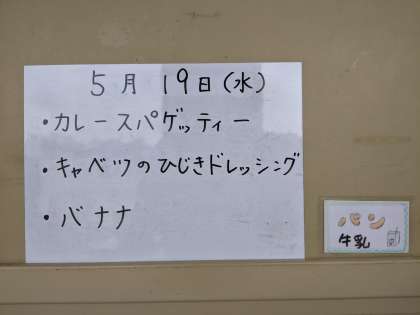 5月19日(水)
・カレースパゲッティー
・キャベツのひじきドレッシング
・バナナ
パン
牛乳